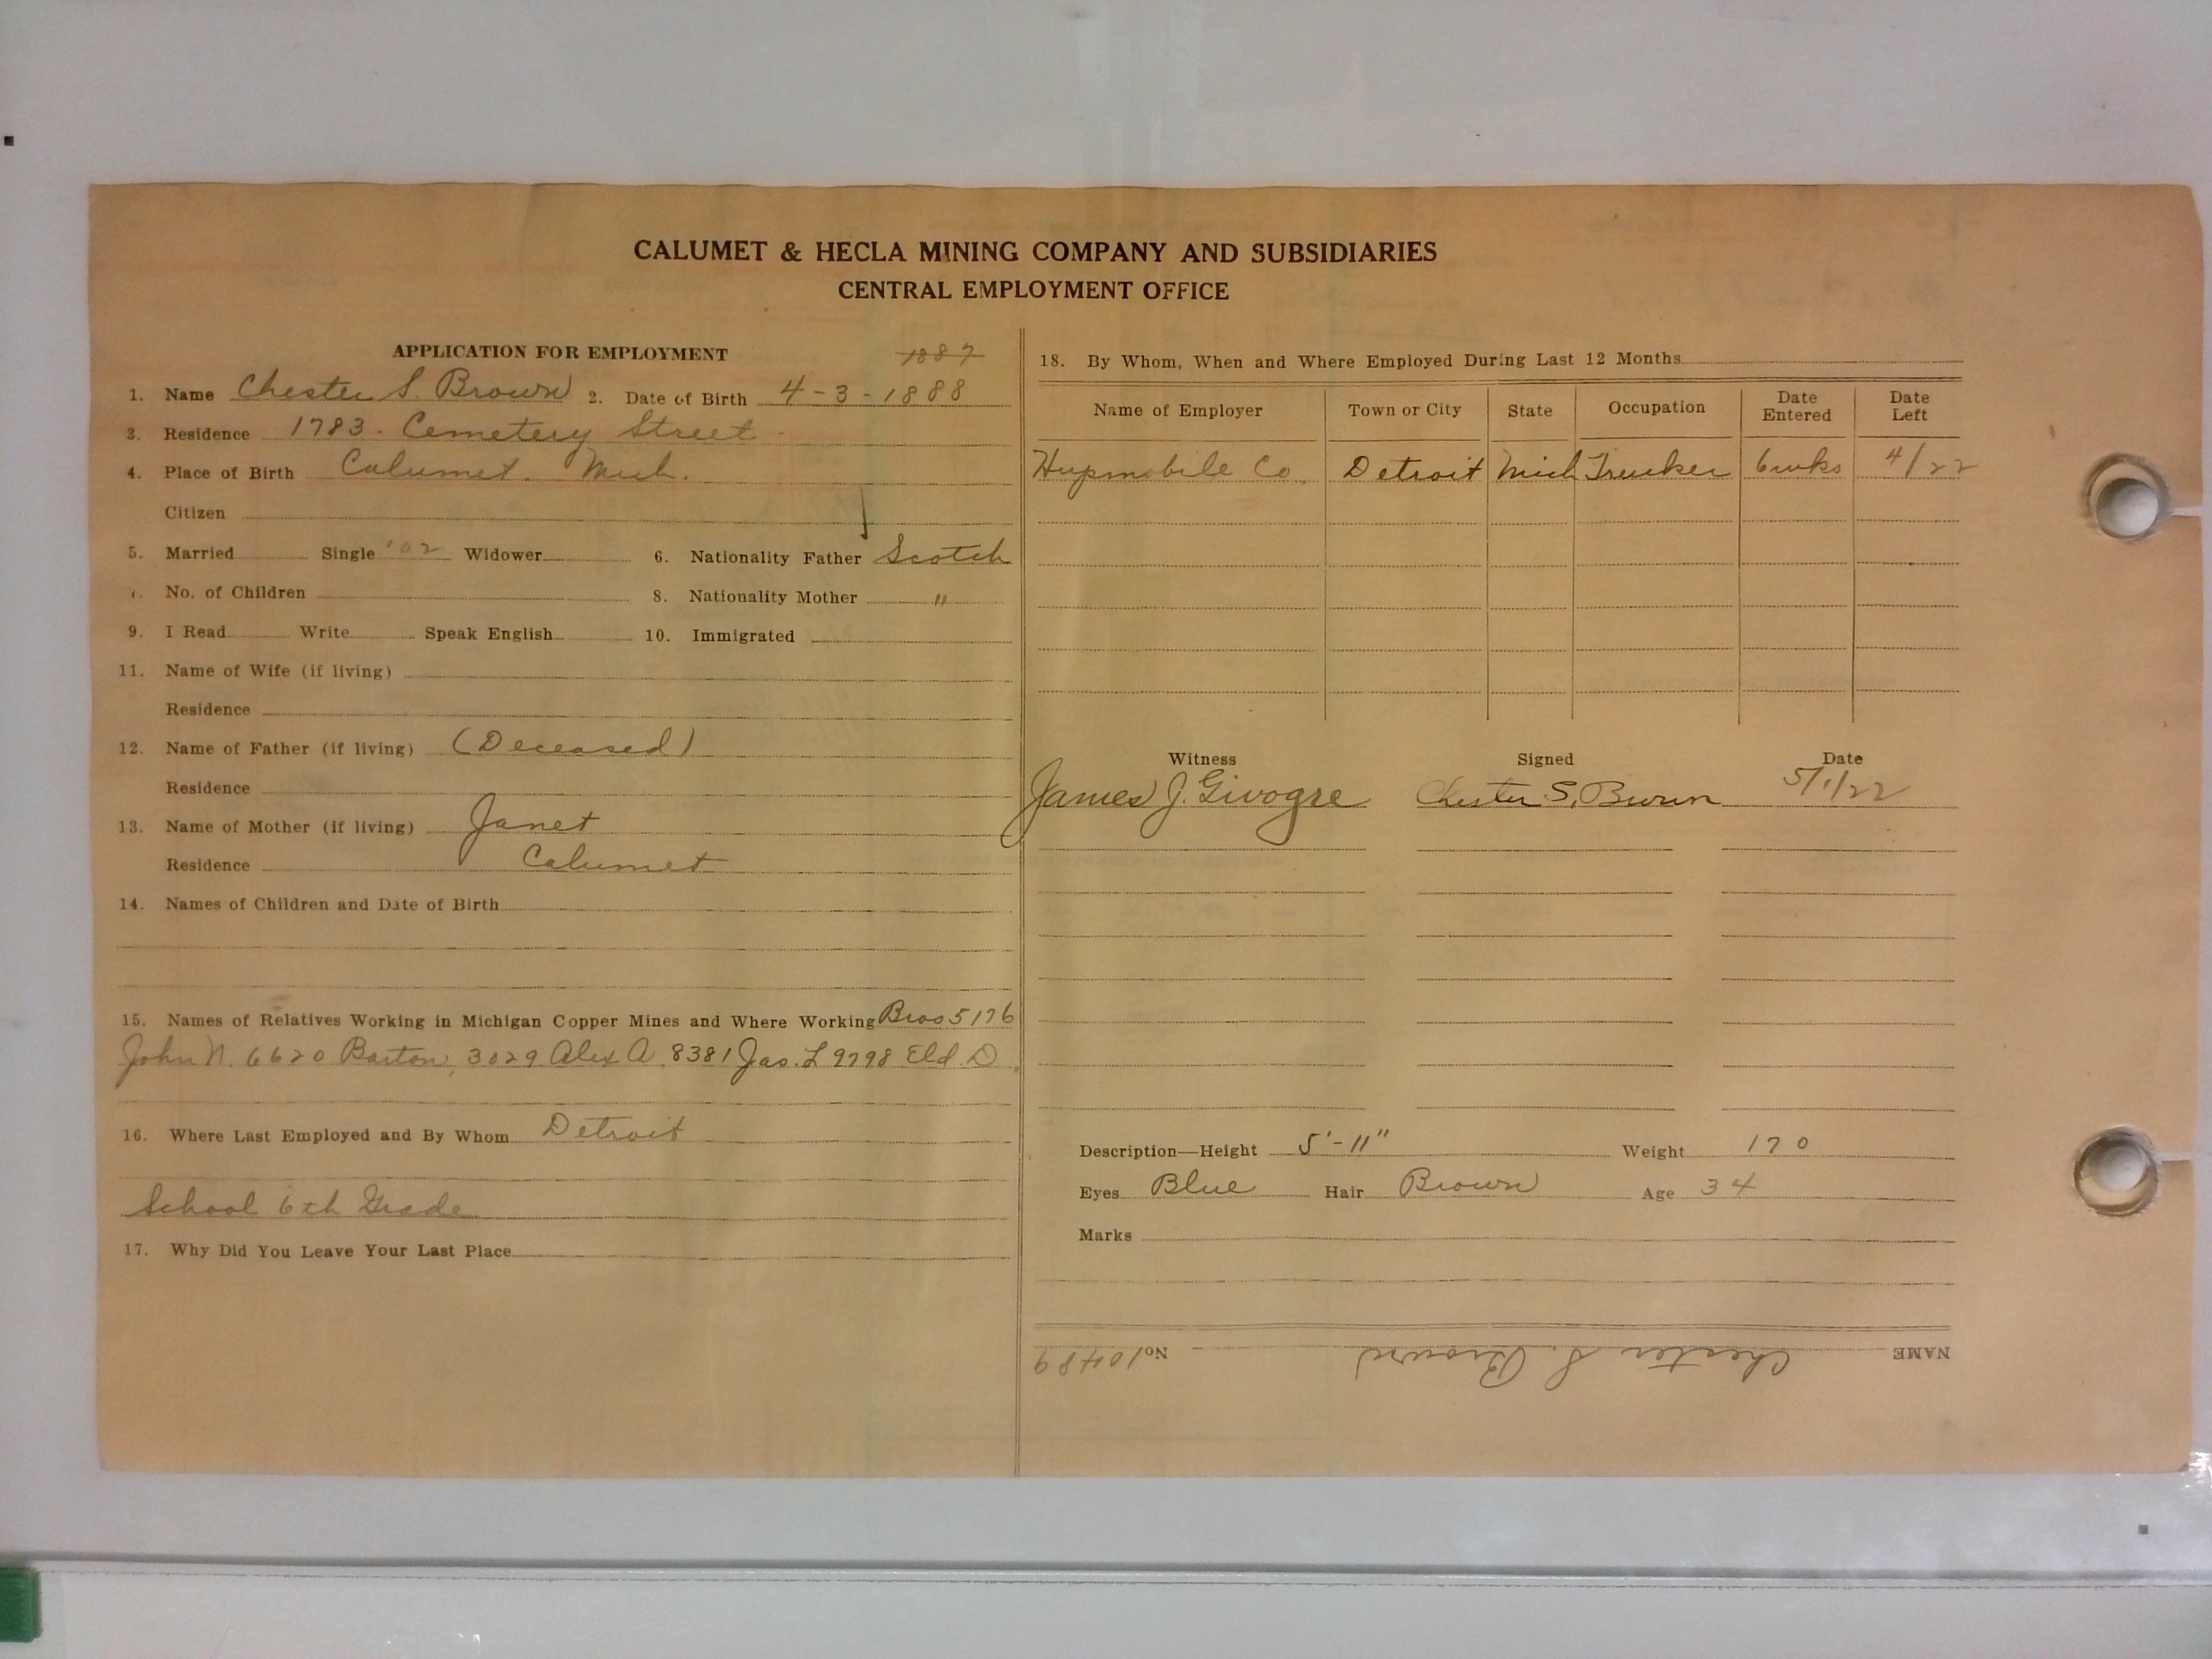 CALUMET & HECLA MINING COMPANY AND SUBSIDIARIES
CENTRAL EMPLOYMENT OFFICE
APPLICATION FOR EMPLOYMENT 1887
1. Name Chester S. Brown 2. Date of Birth 4-3-1888
3. Residence 1783 Cemetery Street
4. Place of Birth Calumet. Mich.
Citizen
5. Married Single '02 Widower 6. Nationality Father Scotch
7. No. of Children 8. Nationality Mother "
9. I Read Write Speak English 10. Immigrated
11. Name of Wife (if living)
Residence
12. Name of Father (if living) (Deceased)
Residence
13. Name of Mother (if living) Janet
Residence Calumet
14. Names of Children and Date of Birth
15. Names of Relatives Working in Michigan Copper Mines and Where Working Bros 5176
John N. 6620 Barton, 3029 Alex A. 8381 Jas. L 9798 Eld. D
16. Where Last Employed and By Whom Detroit
School 6th Grade
17. Why Did You Leave Your Last Place
18. By Whom, When and Where Employed During Last 12 Months
Name of Employer Town or City State Occupation Date Entered Date Left
Hupmobile Co. Detroit Mich Trucker 6 wks 4/22
Witness Signed Date
James J. Givogre Chester S. Brown 5/1/22
Description—Height 5'-11" Weight 170
Eyes Blue Hair Brown Age 34
Marks
NAME Chester S. Brown No 10489